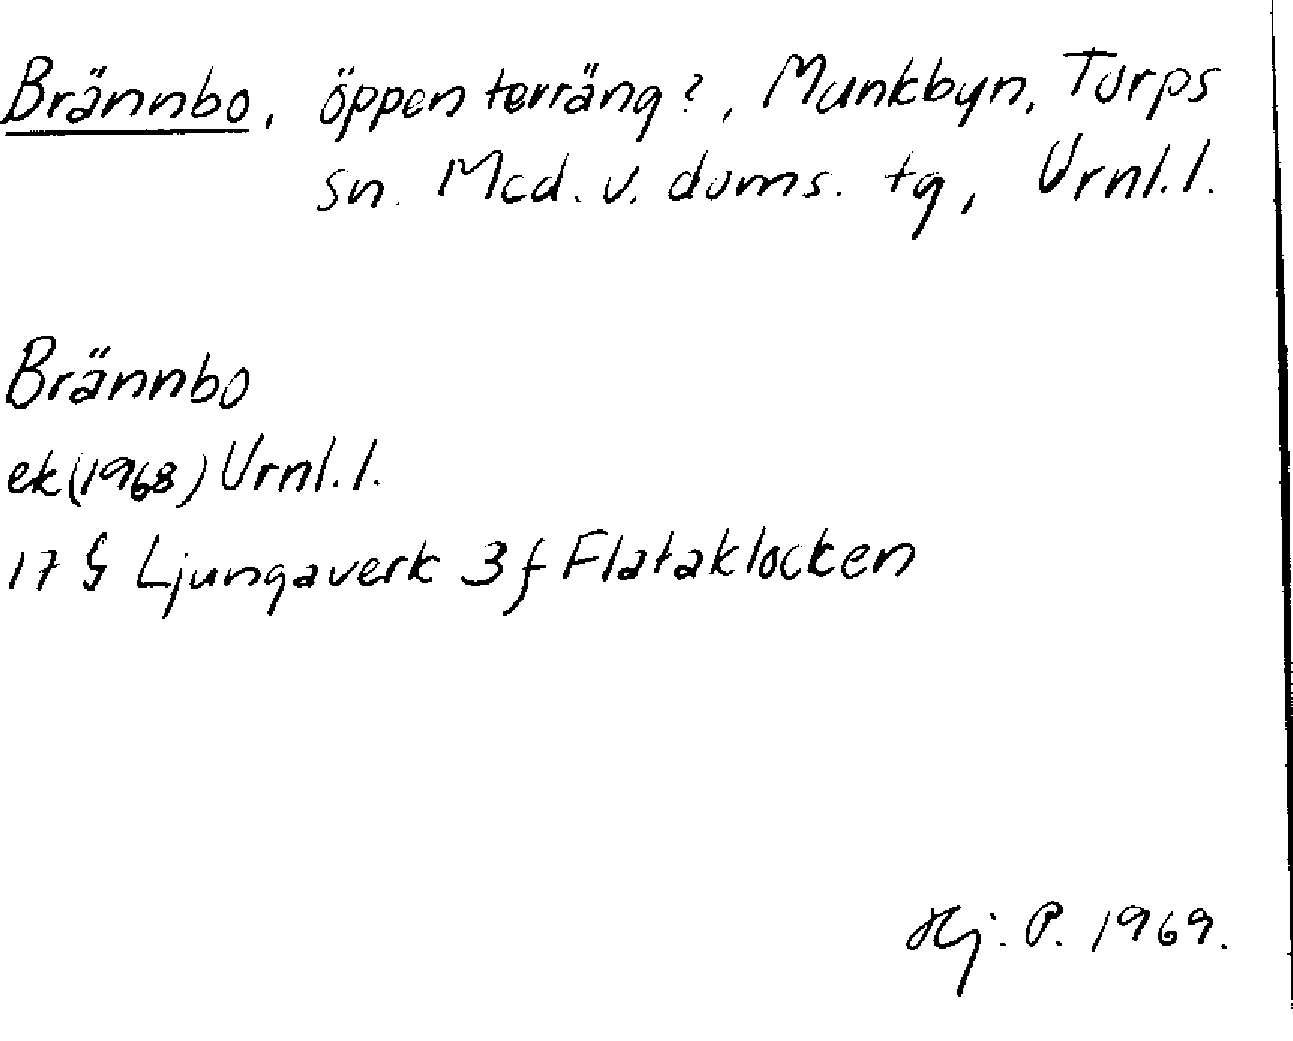 Brännbo, öppen terräng?, Munkbyn, Torps
sn. Med. v. doms. tg, Vrnl. l.
Brännbo
ek (1968) Vrnl. l.
17 G Ljungaverk 3 f Flataklocken
Hj. P. 1969.